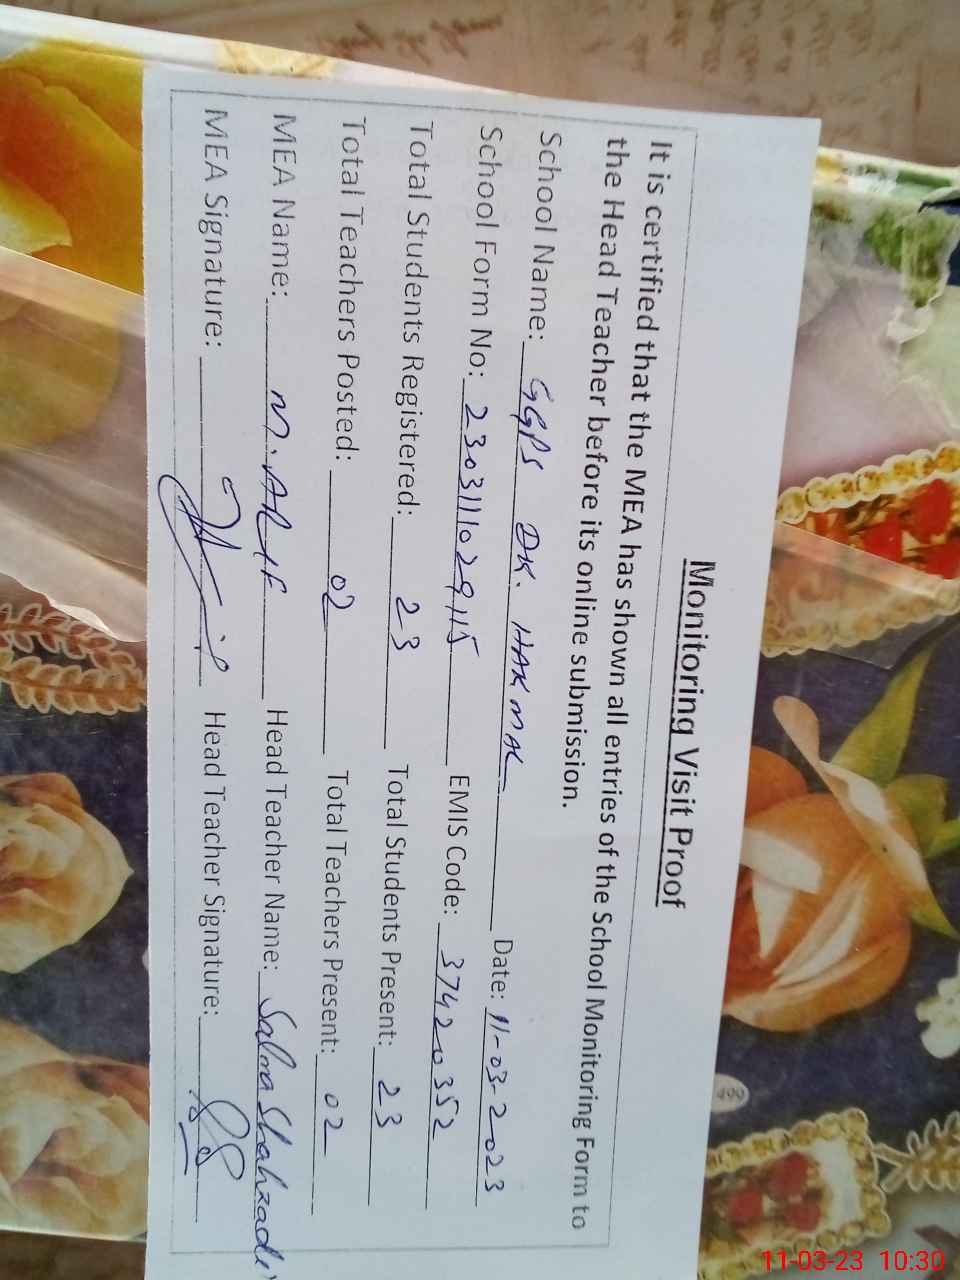 Monitoring Visit Proof
It is certified that the MEA has shown all entries of the School Monitoring Form to
the Head Teacher before its online submission.
School Name: GGPS DK. HAKMAL Date: 11-03-2023
School Form No: 2303111029115 EMIS Code: 37420352
Total Students Registered: 23 Total Students Present: 23
Total Teachers Posted: 02 Total Teachers Present: 02
MEA Name: M. ARIF Head Teacher Name: Salma Shahzadi
MEA Signature: Head Teacher Signature:
499
11-03-23 10:30